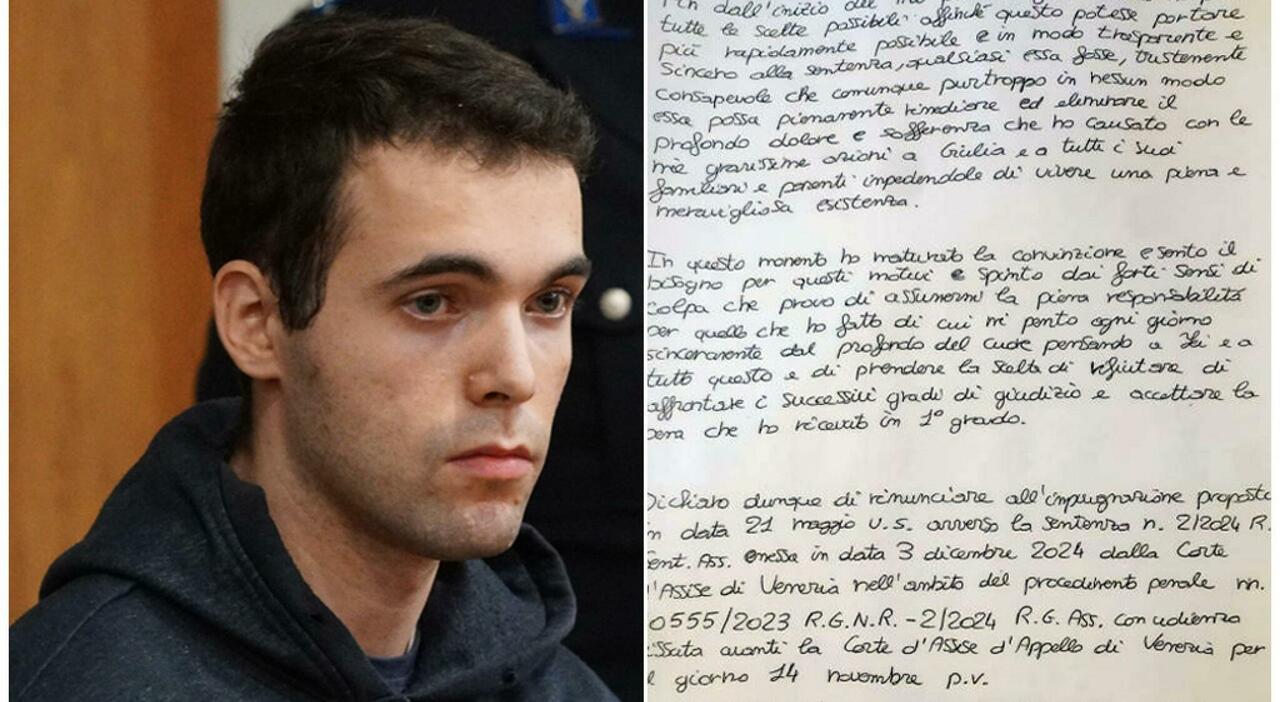 dall'inizio del
tutte le scelte possibili affinché questo potesse portare
più rapidamente possibile e in modo trasparente e
sincero alla sentenza, qualsiasi essa fosse, tristemente
consapevole che comunque purtroppo in nessun modo
essa possa pienamente rimediare ed eliminare il
profondo dolore e sofferenza che ho causato con le
mie gravissime azioni a Giulia e a tutti i suoi
familiari e parenti impedendole di vivere una piena e
meravigliosa esistenza.
In questo momento ho maturato la convinzione e sento il
bisogno per questi motivi e spinto dai forti sensi di
colpa che provo di assumermi la piena responsabilità
per quello che ho fatto di cui mi pento ogni giorno
sinceramente dal profondo del cuore pensando a Lei e a
tutto questo e di prendere la scelta di rifiutare di
affrontare i successivi gradi di giudizio e accettare la
pena che ho ricevuto in 1° grado.
Dichiaro dunque di rinunciare all'impugnazione proposta
in data 21 maggio u.s. avverso la sentenza n. 2/2024 R.
Sent. Ass. emessa in data 3 dicembre 2024 dalla Corte
d'Assise di Venezia nell'ambito del procedimento penale nn.
0555/2023 R.G.N.R. - 2/2024 R.G. Ass. con udienza
fissata avanti la Corte d'Assise d'Appello di Venezia per
il giorno 14 novembre p.v.